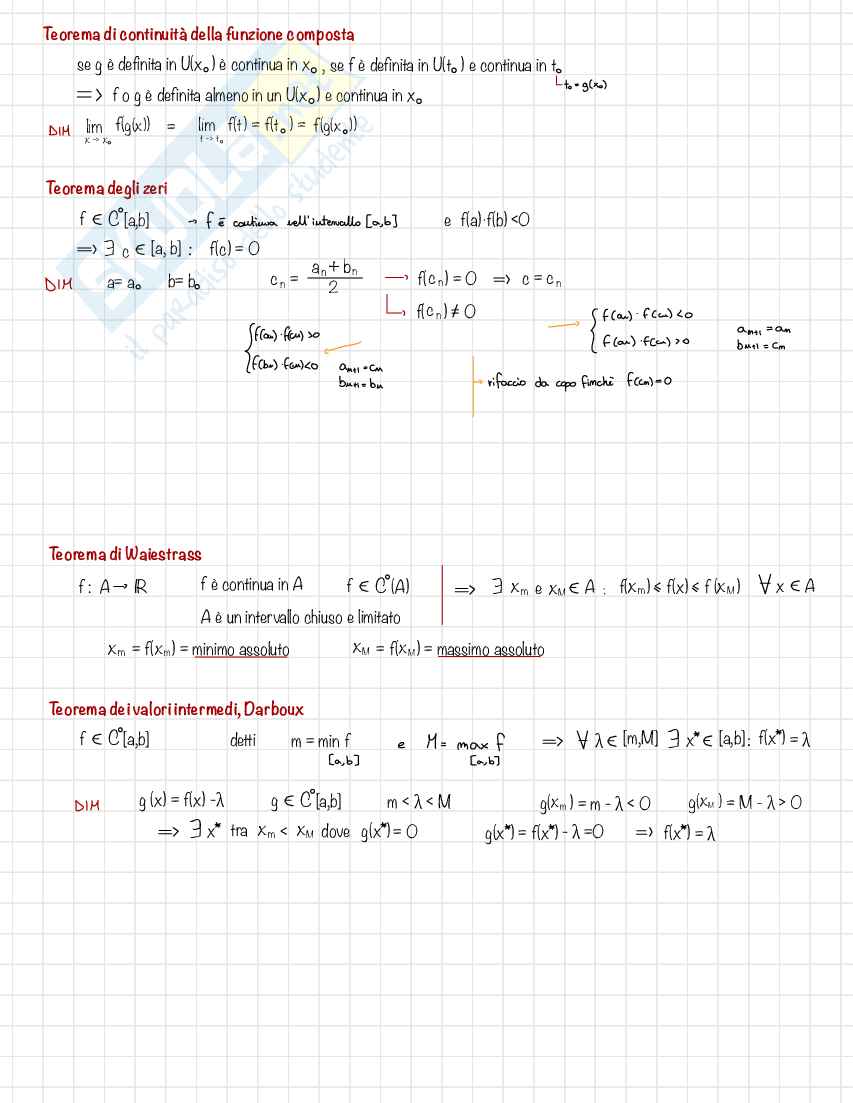 Teorema di continuità della funzione composta
se g è definita in U(x₀) è continua in x₀, se f è definita in U(t₀) e continua in t₀
t₀ = g(x₀)
=> f o g è definita almeno in un U(x₀) e continua in x₀
DIM lim x→x₀ f(g(x)) = lim t→t₀ f(t) = f(t₀) = f(g(x₀))
Teorema degli zeri
f ∈ C⁰[a,b] → f è continua nell'intervallo [a,b] e f(a)·f(b)<0
=> ∃ c ∈ [a,b] : f(c) = 0
DIM a = a₀ b = b₀ cₙ = (aₙ+bₙ)/2 → f(cₙ) = 0 => c = cₙ
↳ f(cₙ) ≠ 0
{ f(aₙ)·f(cₙ)>0
f(bₙ)·f(cₙ)<0
aₙ₊₁ = cₙ
bₙ₊₁ = bₙ
{ f(aₙ)·f(cₙ)<0
f(aₙ)·f(cₙ)>0
aₙ₊₁ = aₙ
bₙ₊₁ = cₙ
rifaccio da capo finchè f(cₙ)=0
Teorema di Waiestrass
f: A → ℝ f è continua in A f ∈ C⁰(A) => ∃ xₘ e x_M ∈ A : f(xₘ) ≤ f(x) ≤ f(x_M) ∀ x ∈ A
A è un intervallo chiuso e limitato
xₘ = f(xₘ) = minimo assoluto x_M = f(x_M) = massimo assoluto
Teorema dei valori intermedi, Darboux
f ∈ C⁰[a,b] detti m = min f [a,b] e M = max f [a,b] => ∀ λ ∈ [m,M] ∃ x* ∈ [a,b]: f(x*) = λ
DIM g(x) = f(x) - λ g ∈ C⁰[a,b] m < λ < M g(xₘ) = m - λ < 0 g(x_M) = M - λ > 0
=> ∃ x* tra xₘ < x_M dove g(x*) = 0 g(x*) = f(x*) - λ = 0 => f(x*) = λ
SKUOLA.net
il paradiso dello studente